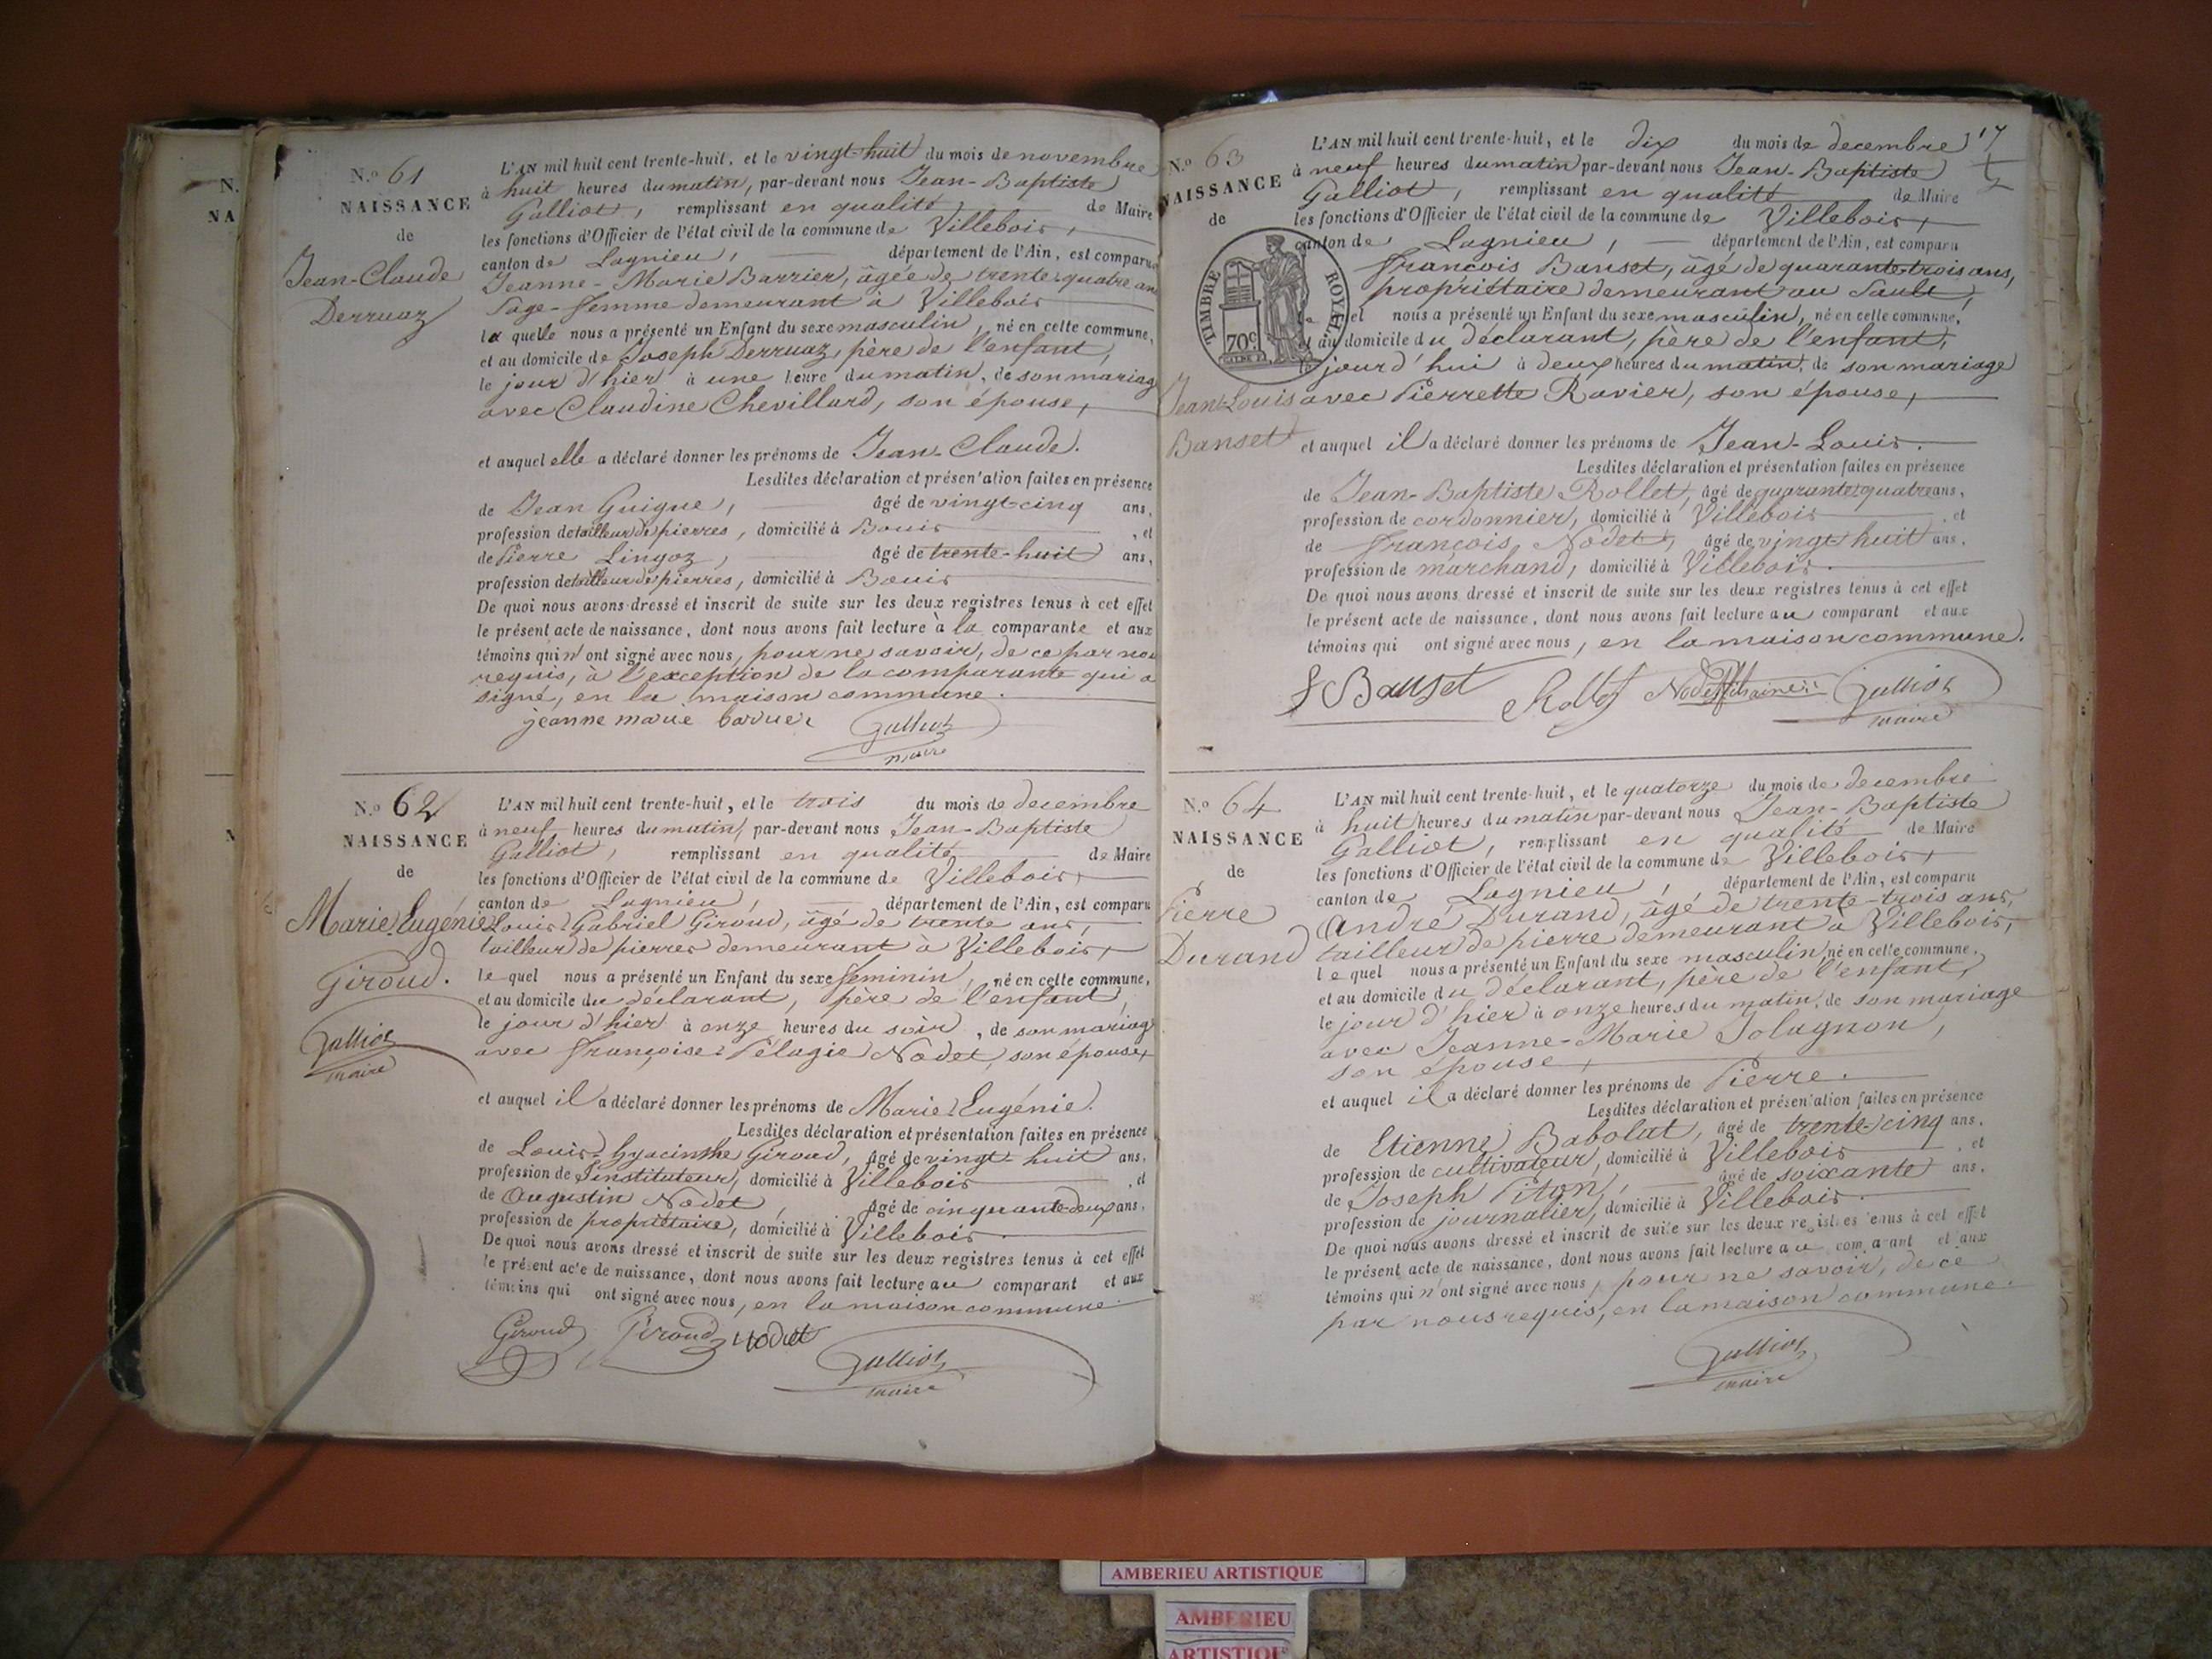 N.
NA
N
N.º 61
NAISSANCE
de
Jean-Claude
Derruaz
L'AN mil huit cent trente-huit, et le vingt-huit du mois de novembre
à huit heures du matin, par-devant nous Jean-Baptiste
Galliot, remplissant en qualité de Maire
les fonctions d'Officier de l'état civil de la commune de Villebois,
canton de Lagnieu, département de l'Ain, est comparue
Jeanne-Marie Barrier, âgée de trente-quatre ans
sage-femme demeurant à Villebois
laquelle nous a présenté un Enfant du sexe masculin, né en cette commune,
et au domicile de Joseph Derruaz, père de l'enfant,
le jour d'hier à une heure du matin, de son mariage
avec Claudine Chevillard, son épouse,
et auquel elle a déclaré donner les prénoms de Jean-Claude.
Lesdites déclaration et présentation faites en présence
de Jean Guigue, âgé de vingt-cinq ans,
profession de tailleur de pierres, domicilié à Bouis, et
de Pierre Lingoz, âgé de trente-huit ans,
profession de tailleur de pierres, domicilié à Bouis
De quoi nous avons dressé et inscrit de suite sur les deux registres tenus à cet effet
le présent acte de naissance, dont nous avons fait lecture à la comparante et aux
témoins qui n'ont signé avec nous, pour ne savoir, de ce par nous
requis, à l'exception de la comparante qui a
signé, en la maison commune.
jeanne marie barrier Galliot
maire
N.º 62
NAISSANCE
de
Marie Eugénie
Giroud.
Galliot
maire
L'AN mil huit cent trente-huit, et le trois du mois de decembre
à neuf heures du matin, par-devant nous Jean-Baptiste
Galliot, remplissant en qualité de Maire
les fonctions d'Officier de l'état civil de la commune de Villebois,
canton de Lagnieu, département de l'Ain, est comparu
Louis Gabriel Giroud, âgé de trente ans,
tailleur de pierres demeurant à Villebois,
lequel nous a présenté un Enfant du sexe feminin, né en cette commune,
et au domicile du déclarant, père de l'enfant,
le jour d'hier à onze heures du soir, de son mariage
avec Françoise Pélagie Nodet, son épouse,
et auquel il a déclaré donner les prénoms de Marie Eugénie.
Lesdites déclaration et présentation faites en présence
de Louis-hyacinthe Giroud, âgé de vingt-huit ans,
profession de Jinstituteur, domicilié à Villebois, et
de Augustin Nodet, âgé de cinquante-deux ans,
profession de propriétaire, domicilié à Villebois
De quoi nous avons dressé et inscrit de suite sur les deux registres tenus à cet effet
le présent acte de naissance, dont nous avons fait lecture au comparant et aux
témoins qui ont signé avec nous, en la maison commune.
Giroud Giroud Nodet Galliot
maire
17
N.º 63
NAISSANCE
de
TIMBRE ROYAL
70c
Jean-Louis
Banset
L'AN mil huit cent trente-huit, et le dix du mois de decembre
à neuf heures du matin par-devant nous Jean-Baptiste
Galliot, remplissant en qualité de Maire
les fonctions d'Officier de l'état civil de la commune de Villebois,
canton de Lagnieu, département de l'Ain, est comparu
François Banset, âgé de quarante-trois ans,
propriétaire demeurant au Sault,
lequel nous a présenté un Enfant du sexe masculin, né en cette commune,
et au domicile du déclarant, père de l'enfant,
le jour d'hui à deux heures du matin, de son mariage
avec Pierrette Ravier, son épouse,
et auquel il a déclaré donner les prénoms de Jean-Louis.
Lesdites déclaration et présentation faites en présence
de Jean-Baptiste Rollet, âgé de quarante-quatre ans,
profession de cordonnier, domicilié à Villebois, et
de François Nodet, âgé de vingt huit ans,
profession de marchand, domicilié à Villebois.
De quoi nous avons dressé et inscrit de suite sur les deux registres tenus à cet effet
le présent acte de naissance, dont nous avons fait lecture au comparant et aux
témoins qui ont signé avec nous, en la maison commune.
F Banset Rollet Nodet Galliot
maire
N.º 64
NAISSANCE
de
Pierre
Durand
L'AN mil huit cent trente-huit, et le quatorze du mois de decembre
à huit heures du matin par-devant nous Jean-Baptiste
Galliot, remplissant en qualité de Maire
les fonctions d'Officier de l'état civil de la commune de Villebois,
canton de Lagnieu, département de l'Ain, est comparu
André Durand, âgé de trente-trois ans,
tailleur de pierre demeurant à Villebois,
lequel nous a présenté un Enfant du sexe masculin né en cette commune,
et au domicile du déclarant, père de l'enfant,
le jour d'hier à onze heures du matin, de son mariage
avec Jeanne-Marie Solagnon,
son épouse,
et auquel il a déclaré donner les prénoms de Pierre.
Lesdites déclaration et présentation faites en présence
de Etienne Babolat, âgé de trente-cinq ans,
profession de cultivateur, domicilié à Villebois, et
de Joseph Piton, âgé de soixante ans,
profession de journalier, domicilié à Villebois.
De quoi nous avons dressé et inscrit de suite sur les deux registres tenus à cet effet
le présent acte de naissance, dont nous avons fait lecture au comparant et aux
témoins qui n'ont signé avec nous, pour ne savoir, de ce
par nous requis, en la maison commune.
Galliot
maire
AMBERIEU ARTISTIQUE
AMBERIEU
ARTISTIQUE